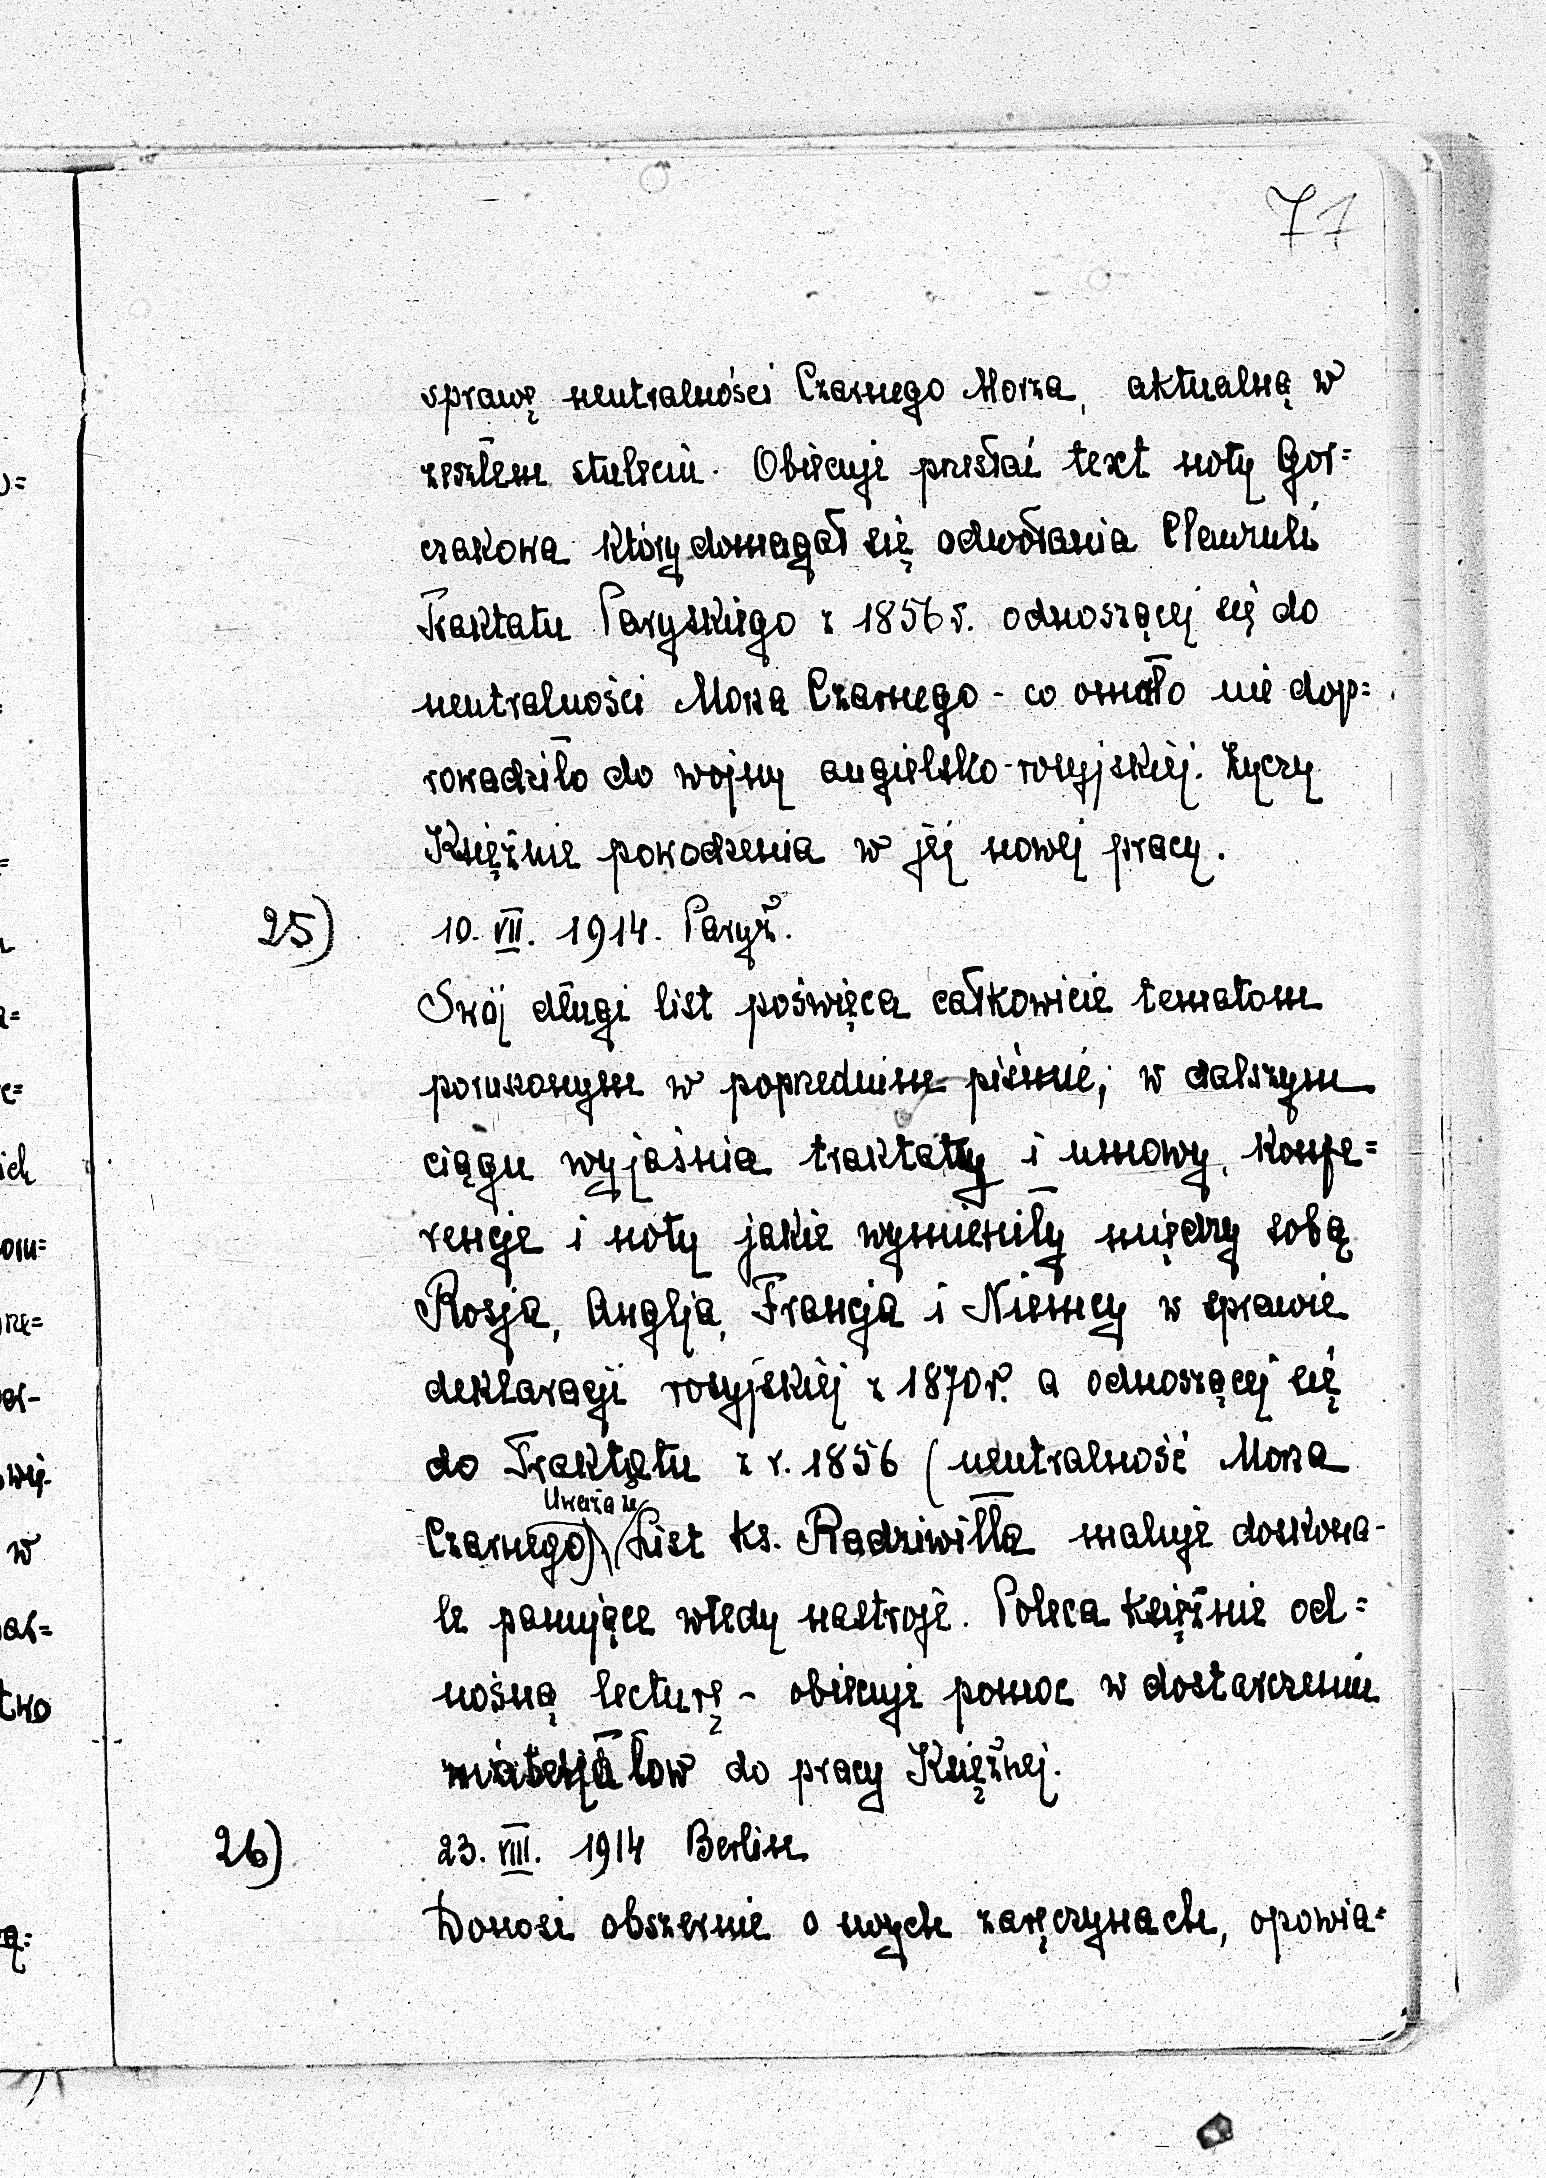 71
sprawę neutralności Czarnego Morza, aktualną w
zeszłem stuleciu. Obiecuje przesłać text noty Gor=
czakowa który domagał się odwołania Clauzuli
Traktatu Paryskiego z 1856 r. odnoszącej się do
neutralności Morza Czarnego - co omało nie dop=
rowadziło do wojny angielsko-rosyjskiej. Życzy
Księżnie powodzenia w jej nowej pracy.
25) 10. VII. 1914. Paryż.
Swój długi list poświęca całkowicie tematom
poruszonym w poprzednim piśmie; w dalszym
ciągu wyjaśnia traktaty i umowy, konfe=
rencje i noty jakie wymieniły między sobą
Rosja, Anglja, Francja i Niemcy w sprawie
deklaracji rosyjskiej z 1870 r. a odnoszącej się
do Traktatu z r. 1856 (neutralność Morza
Uważa że
Czarnego) List ks. Radziwiłła maluje doskona-
le panujące wtedy nastroje. Poleca księżnie od=
nośną lecturę - obiecuje pomoc w dostarczeniu
materjałow do pracy Księżnej.
26) 23. VIII. 1914 Berlin
Donosi obszernie o swych zaręczynach, opowia=